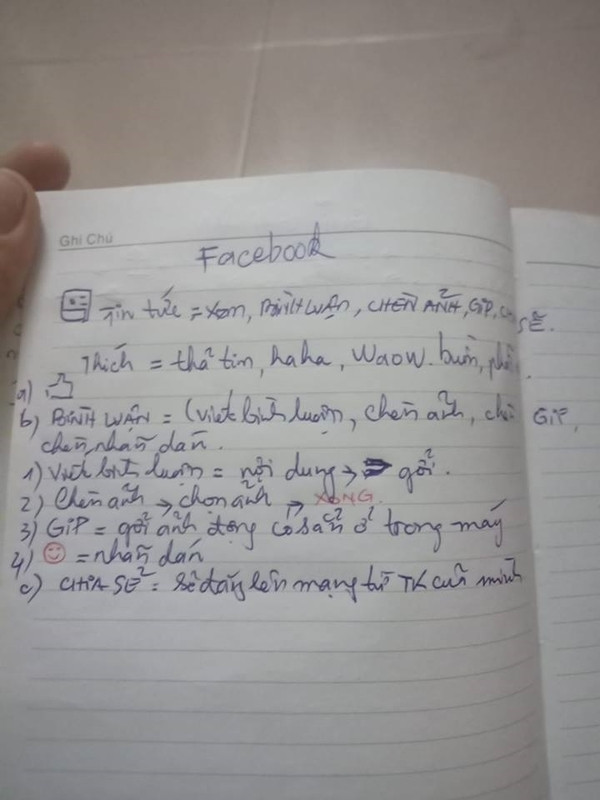 Ghi Chú
Facebook
Tin tức = Xem, BÌNH LUẬN, CHÈN ẢNH, GiP, SẼ.
Thích = thả tim, haha, Waow. buồn,
a)
b) BÌNH LUẬN = (viết bình luận, chèn ảnh, GiP,
chèn nhãn dán.
1) Viết bình luận = nội dung → gởi.
2) Chèn ảnh → chọn ảnh → XONG.
3) GiP = gởi ảnh động có sẳn ở trong máy
4) = nhãn dán
c) CHIA SẺ = sẽ đăng lên mạng từ TK của mình